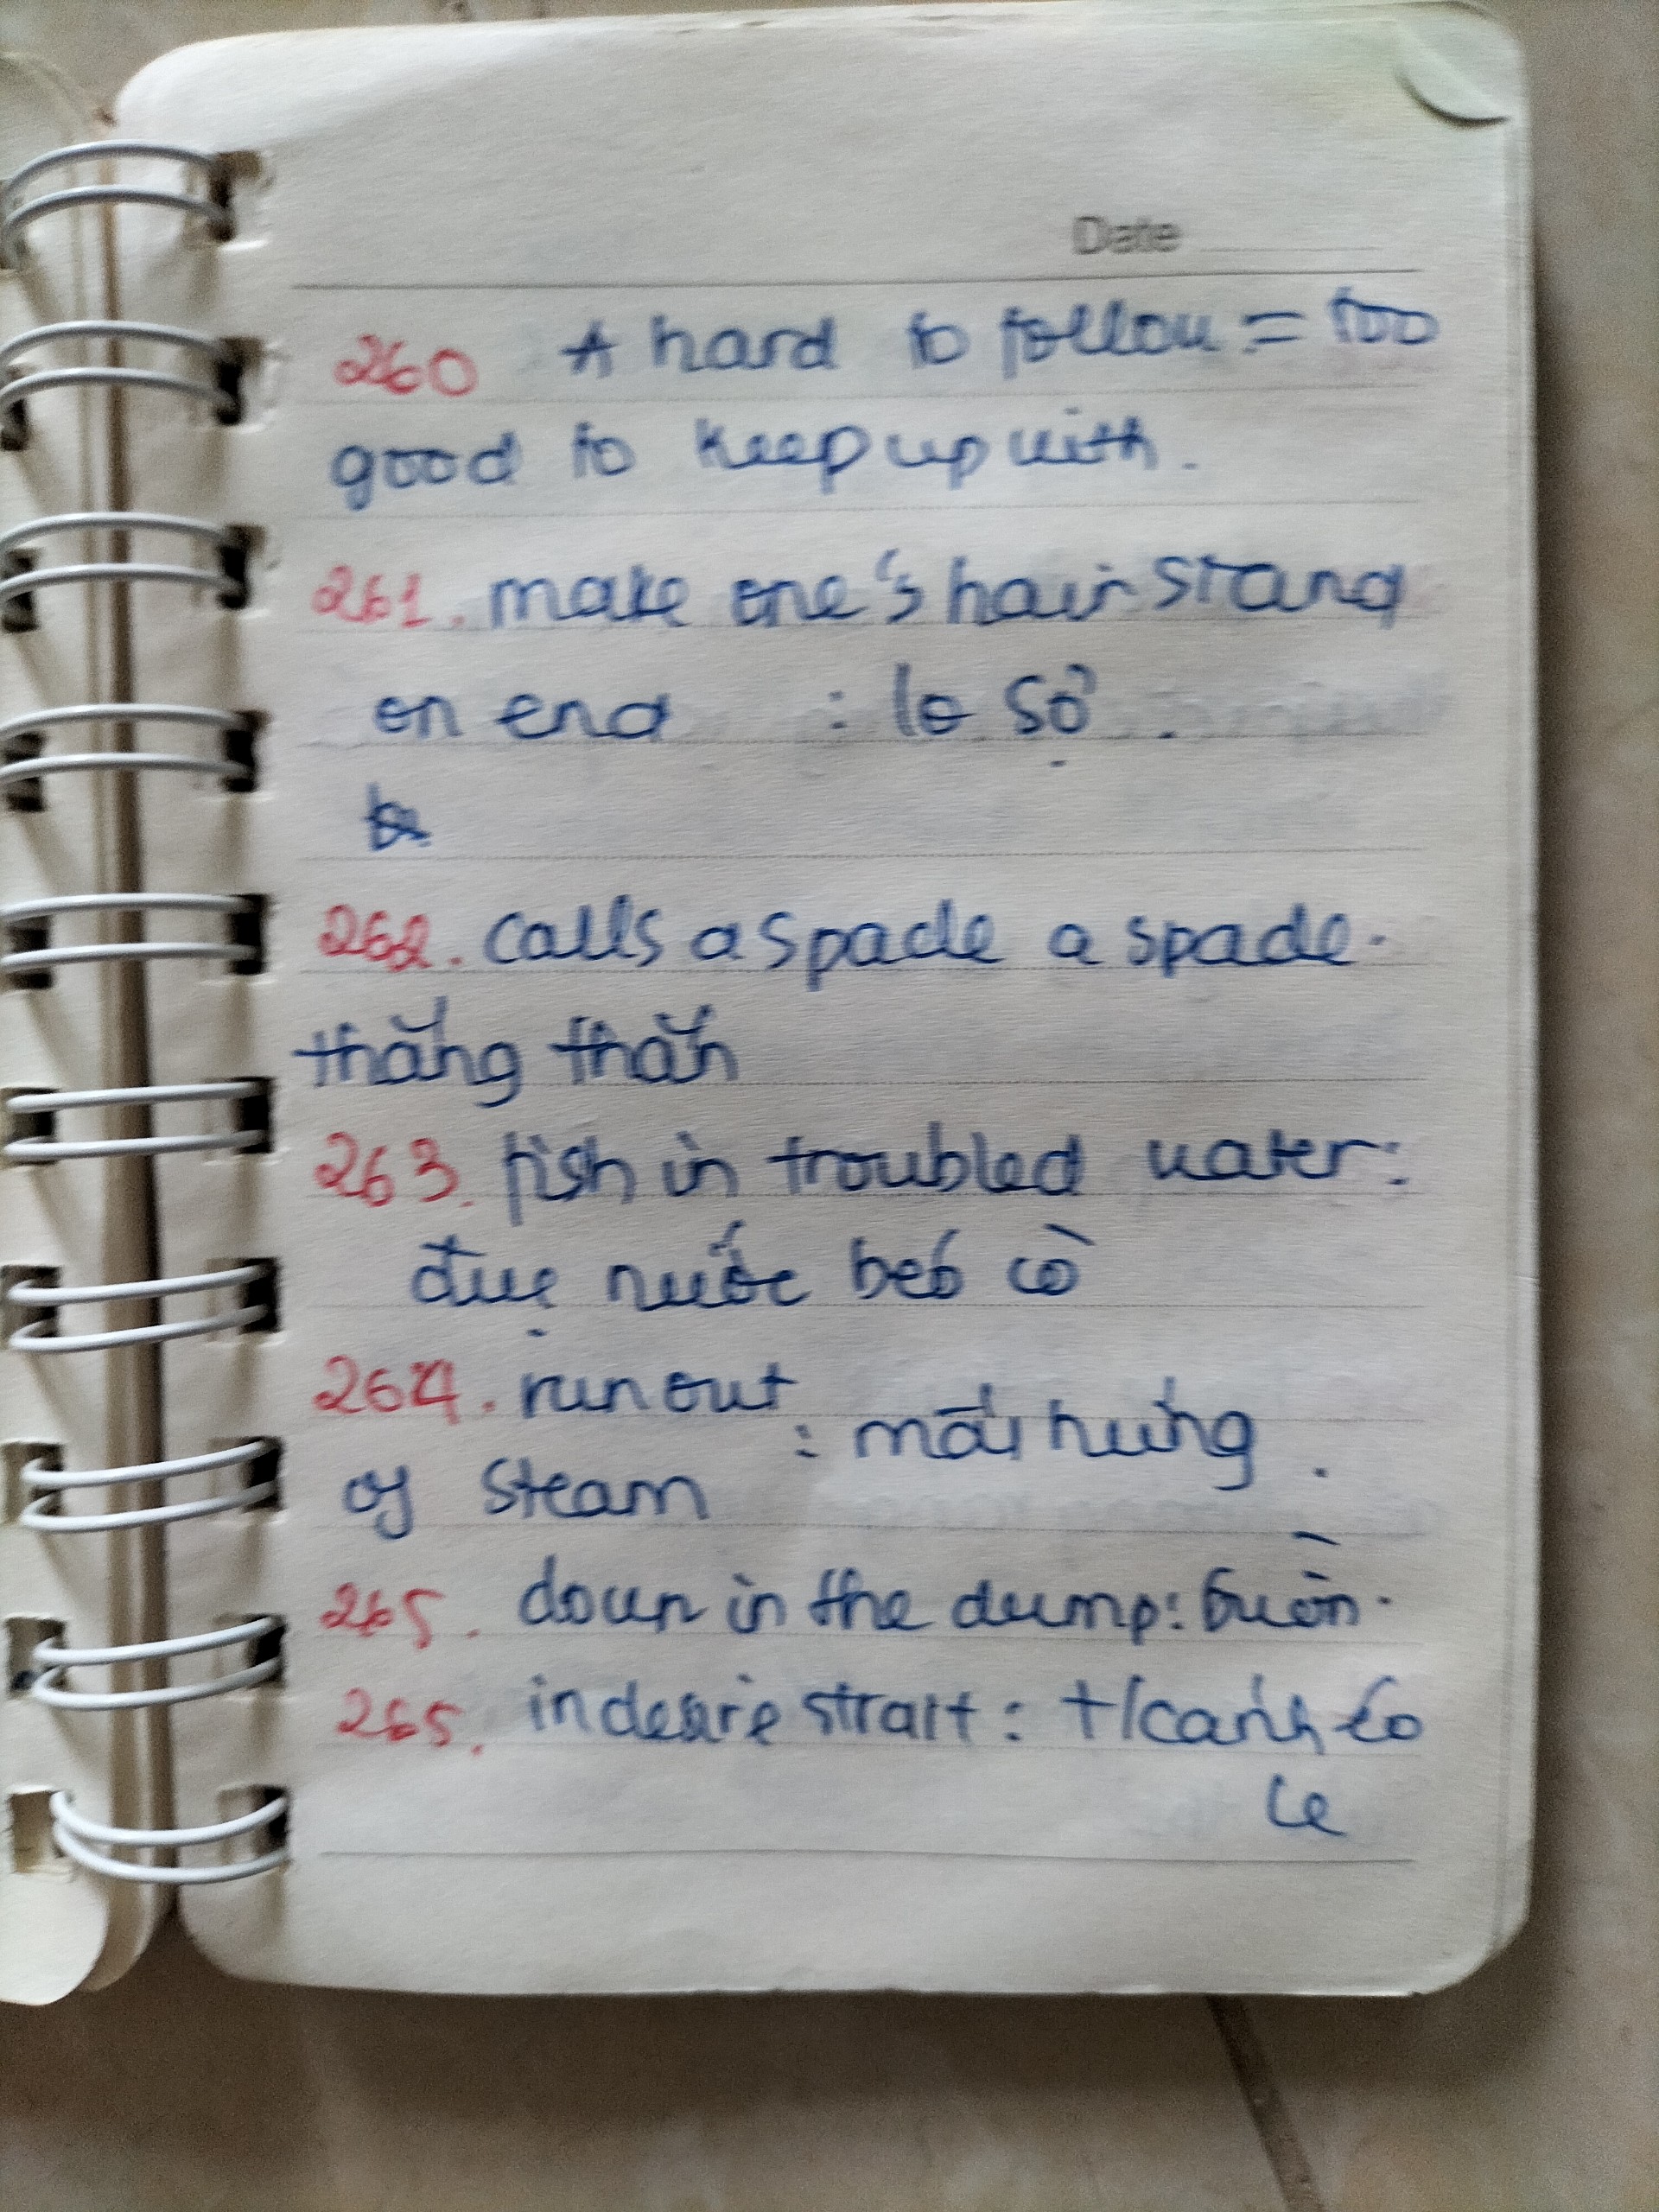 Date
260 A hard to follow = too
good to keep up with.
261. make one's hair stand
on end : lo sợ.
262. calls a spade a spade.
thẳng thắn
263. fish in troubled water:
đục nước béo cò
264. run out
of steam : mất hứng.
265. down in the dump: buồn.
265. in desire strait: t/cảnh éo
le